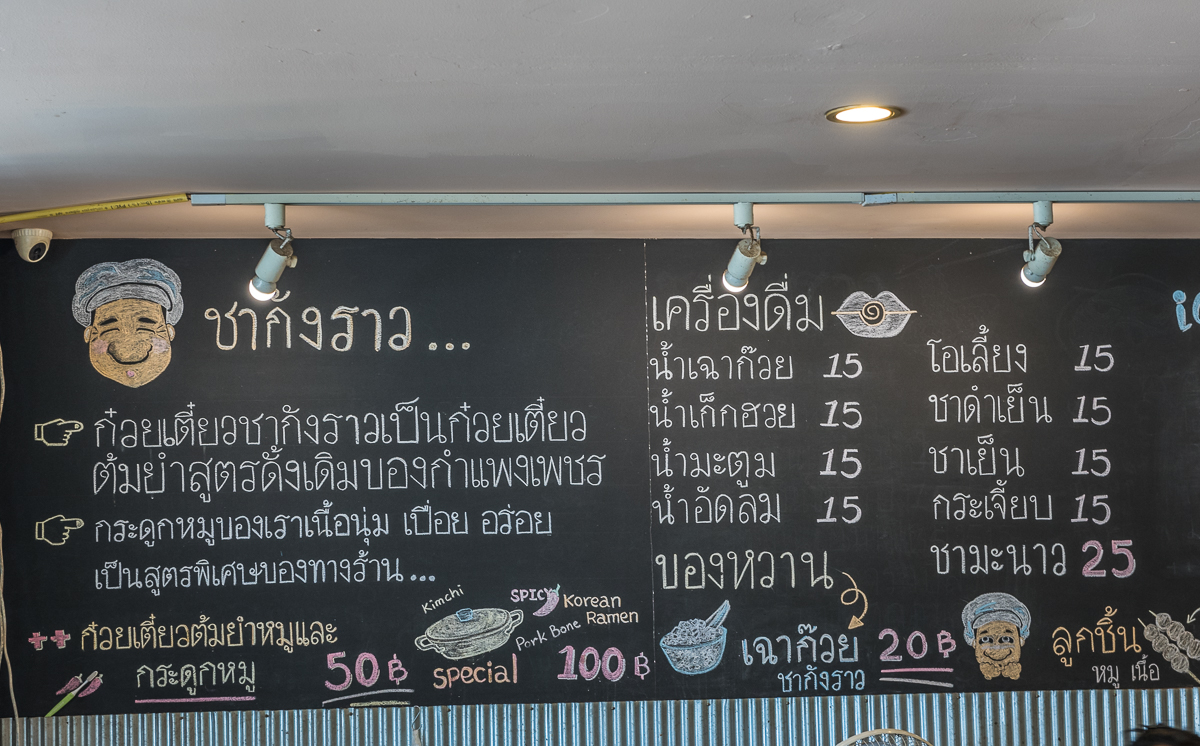 ชากังราว...
ก๋วยเตี๋ยวชากังราวเป็นก๋วยเตี๋ยว
ต้มยำสูตรดั้งเดิมของกำแพงเพชร
กระดูกหมูของเราเนื้อนุ่ม เปื่อย อร่อย
เป็นสูตรพิเศษของทางร้าน...
++ ก๋วยเตี๋ยวต้มยำหมูและ
กระดูกหมู 50฿
Kimchi
SPICY Korean
Pork Bone Ramen
Special 100฿
เครื่องดื่ม
น้ำเฉาก๊วย 15
น้ำเก็กฮวย 15
น้ำมะตูม 15
น้ำอัดลม 15
โอเลี้ยง 15
ชาดำเย็น 15
ชาเย็น 15
กระเจี๊ยบ 15
ชามะนาว 25
ของหวาน
เฉาก๊วย 20฿
ชากังราว
ลูกชิ้น
หมู เนื้อ